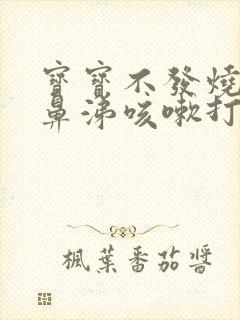 寶寶不發燒
鼻涕咳嗽打
楓葉番茄醬